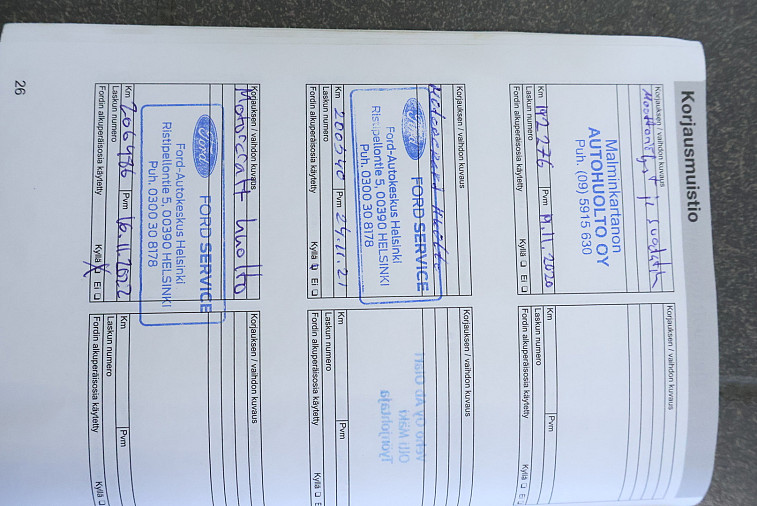 Korjausmuistio
Korjauksen / vaihdon kuvaus
Malminkartanon
AUTOHUOLTO OY
Puh. (09) 5915 630
Km 192276 Pvm 9.11.2020
Laskun numero
Fordin alkuperäisosia käytetty Kyllä Ei
Korjauksen / vaihdon kuvaus
Motorcraft Huolto
Ford FORD SERVICE
Ford-Autokeskus Helsinki
Ristipellontie 5, 00390 HELSINKI
Puh. 0300 30 8178
Km 200340 Pvm 24.11.21
Laskun numero
Fordin alkuperäisosia käytetty Kyllä Ei
Korjauksen / vaihdon kuvaus
Motorcraft huolto
Ford FORD SERVICE
Ford-Autokeskus Helsinki
Ristipellontie 5, 00390 HELSINKI
Puh. 0300 30 8178
Km 206476 Pvm 16.11.2022
Laskun numero
Fordin alkuperäisosia käytetty Kyllä Ei
Korjauksen / vaihdon kuvaus
Km Pvm
Laskun numero
Fordin alkuperäisosia käytetty Kyllä Ei
Korjauksen / vaihdon kuvaus
Km Pvm
Laskun numero
Fordin alkuperäisosia käytetty Kyllä E
Korjauksen / vaihdon kuvaus
Km Pvm
Laskun numero
Fordin alkuperäisosia käytetty Kyllä
26